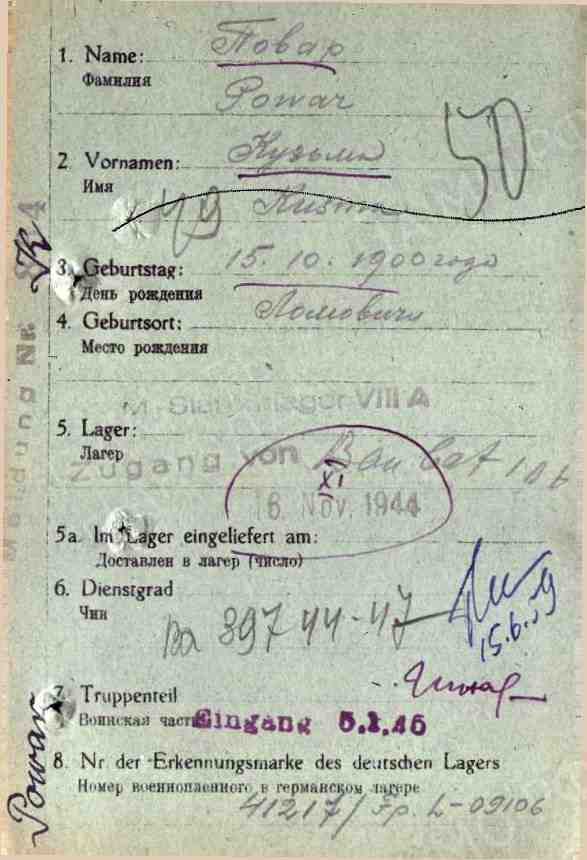 1. Name: Повар
Фамилия
Powar
2. Vornamen: Кузьма
Имя
50
3. Geburtstag: 15. 10. 1900 года
День рождения
4. Geburtsort: Ломовичи
Место рождения
M.-Stammlager VIII A
5. Lager:
Лагерь
Zugang von Bau Bat
XI
16. Nov. 1944
5a. Im Lager eingeliefert am:
Доставлен в лагерь (число)
6. Dienstgrad
Чин
397 44-47
15.6.
7. Truppenteil
Воинская часть
Eingang
8. Nr der Erkennungsmarke des deutschen Lagers
Номер военнопленного в германском лагере
41217/
Powar
Meldung Nr.